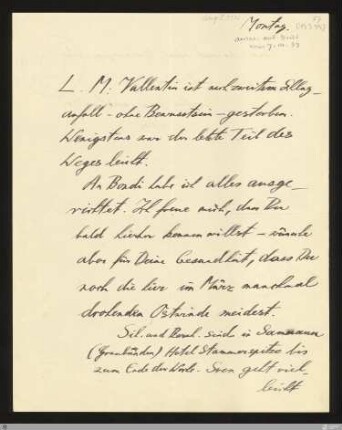 Montag.
L. M. Vallentin ist nach zweitem Schlag-
anfall – ohne Bewusstsein – gestorben.
Wenigstens war der letzte Teil des
Weges leicht.
An Bondi habe ich alles ausge-
richtet. Ich freue mich, dass Du
bald hierher kommen willst – wünsche
aber für Deine Gesundheit, dass Du
noch die hier im März manchmal
drohenden Ostwinde meidest.
Sil. und sind in Samnaun
(Graubünden) Hotel Stammerspitze bis
zum Ende der Woche. Sven geht viel-
leicht